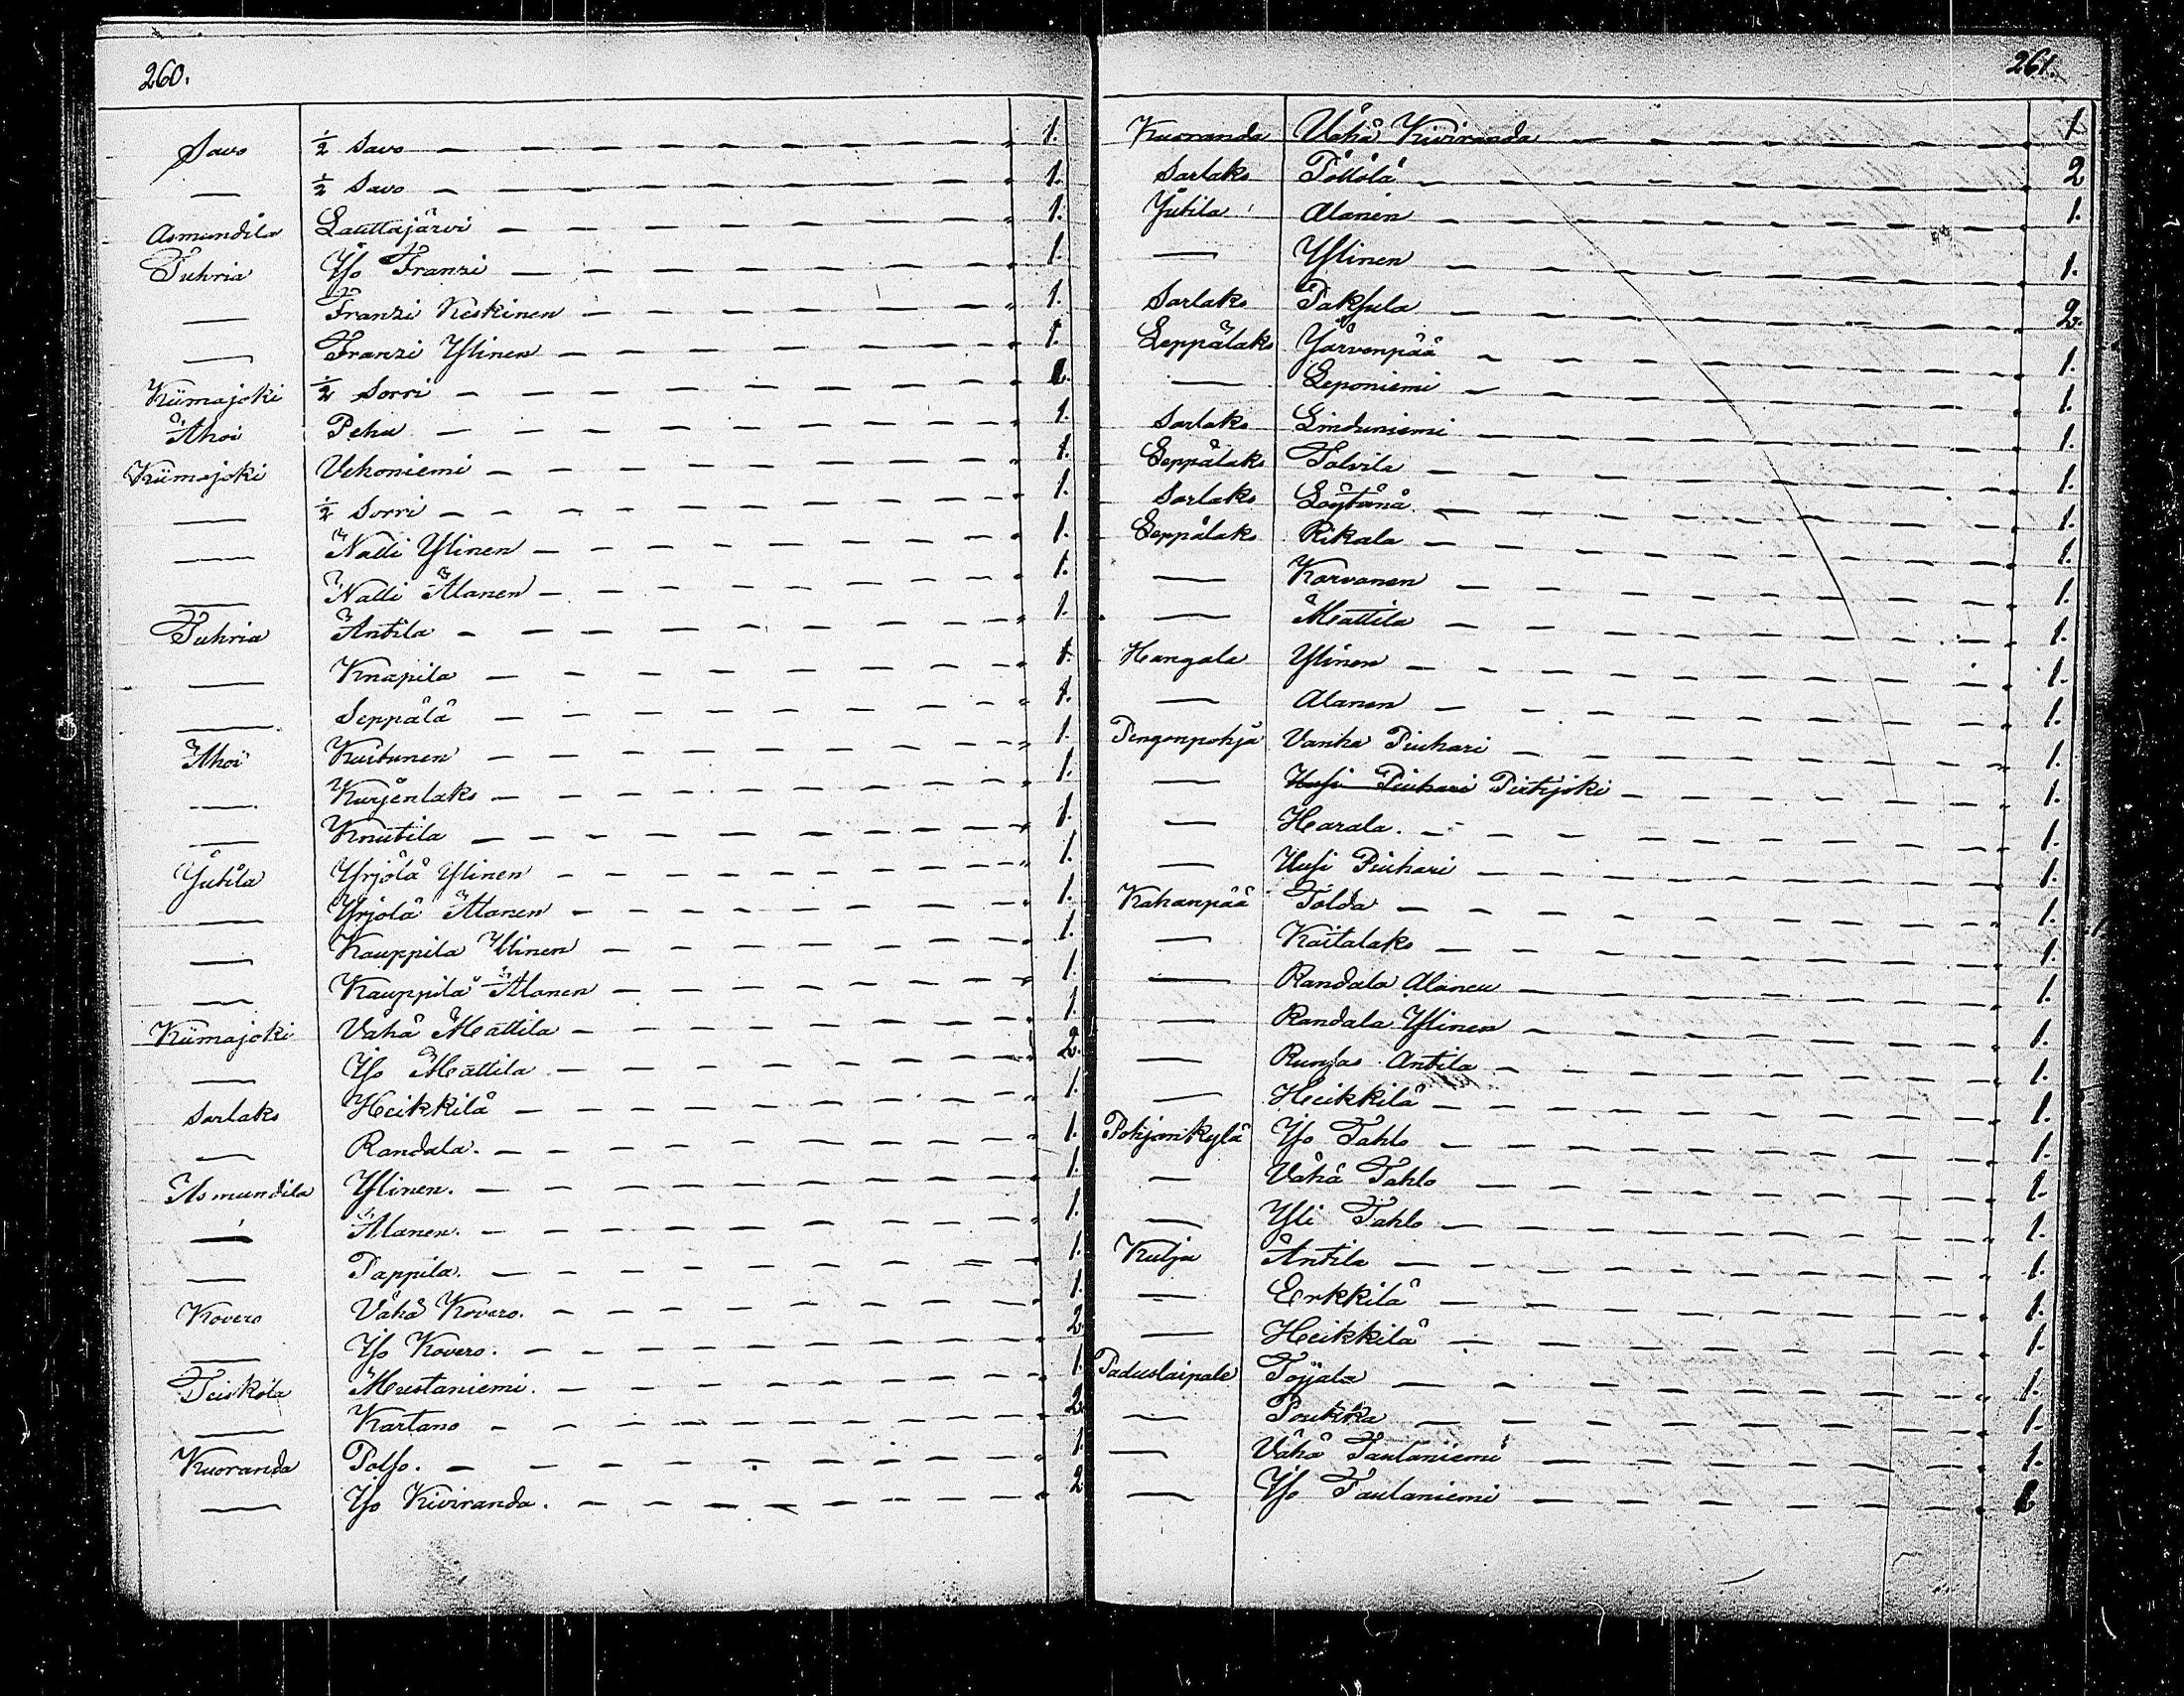 260.
Savo ½ Savo — — — — — — — — — „ 1.
— ½ Savo — — — — — — — — — „ 1.
Asmundila Lauttajärvi — — — — — — — „ 1.
Tuhria Yso Franzi — — — — — — — „ 1.
— Franzi Keskinen — — — — — — „ 1.
— Franzi Ylinen — — — — — — — „ 1.
Kiimajoki ½ Sorri — — — — — — — „ 1.
Ahoi Pehu — — — — — — — — 1.
Kiimajoki Uchoniemi — — — — — — — „ 1.
— ½ Sorri — — — — — — — — 1.
— Nalli Ylinen — — — — — — — „ 1.
— Nalli Alanen — — — — — — — „ 1.
Tuhria Antila — — — — — — — — „ 1.
— Knapila — — — — — — — „ 1.
— Seppälä — — — — — — — „ 1.
Ahoi Kaitunen — — — — — — — „ 1.
— Kurjenlaks — — — — — — — 1.
— Knutila — — — — — — — — „ 1.
Jutila Yrjölä Ylinen — — — — — — — „ 1.
— Yrjölä Alanen — — — — — — — „ 1.
— Kauppila Ylinen — — — — — — — „ 1.
— Kauppila Alanen — — — — — — — „ 1.
Kiimajoki Vähä Mattila — — — — — — — „ 1.
— Yso Mattila — — — — — — — „ 2.
Sarlaks Heikkilä — — — — — — — — „ 1.
— Randala. — — — — — — — — „ 1.
Asmundila Ylinen. — — — — — — — — 1.
— Alanen. — — — — — — — — „ 1.
— Pappila. — — — — — — — — „ 1.
Kovero Vähä Kovero. — — — — — — — „ 1.
— Yso Kovero. — — — — — — — „ 2.
Teiskola Mustaniemi. — — — — — — — 1.
— Kartano — — — — — — — — „ 2.
Kuoranda Polso. — — — — — — — — „ 1.
— Yso Kiviranda. — — — — — — — „ 2
261.
Kuoranda Vähä Kiviranda — — — — — — — „ 1
Sarlaks Pöllölä — — — — — — — — „ 2
Jutila Alanen — — — — — — — — „ 1.
— Ylinen — — — — — — — — „ 1.
Sarlaks Paksula — — — — — — — — „ 2.
Leppälaks Järvenpää — — — — — — — „ 1.
— Leponiemi — — — — — — — „ 1.
Sarlaks Linduniemi — — — — — — — „ 1.
Leppälaks Talvila — — — — — — — — „ 1.
Sarlaks Löytänä — — — — — — — „ 1.
Leppälaks Rikala — — — — — — — — „ 1.
— Karvanen — — — — — — — „ 1.
— Mattila — — — — — — — „ 1.
Hangala Ylinen — — — — — — — — „ 1.
— Alanen — — — — — — — „ 1.
Pengonpohja Vanha Piuhari — — — — — — — „ 1.
— Uusi Piuhari Pirtijoki — — — — — — „ 1.
— Harala. — — — — — — — — „ 1.
— Uusi Piuhari — — — — — — — „ 1.
Kahanpää Tolda — — — — — — — — „ 1.
— Kaitalaks — — — — — — — „ 1.
— Randala Alanen — — — — — — — „ 1.
— Randala Ylinen — — — — — — — „ 1.
— Runsas Antila — — — — — — — „ 1.
— Heikkilä — — — — — — — — „ 1.
Pohjankylä Yso Tahlo — — — — — — — — „ 1.
— Vähä Tahlo — — — — — — — „ 1.
— Yli Tahlo — — — — — — — — „ 1.
Kulja Antila — — — — — — — — „ 1.
— Erkkilä — — — — — — — — „ 1.
— Heikkilä — — — — — — — — „ 1.
Paduslaipale Töijala — — — — — — — — „ 1.
— Poukka — — — — — — — — „ 1.
— Vähä Taulaniemi — — — — — — — „ 1.
— Yso Taulaniemi — — — — — — — „ 1